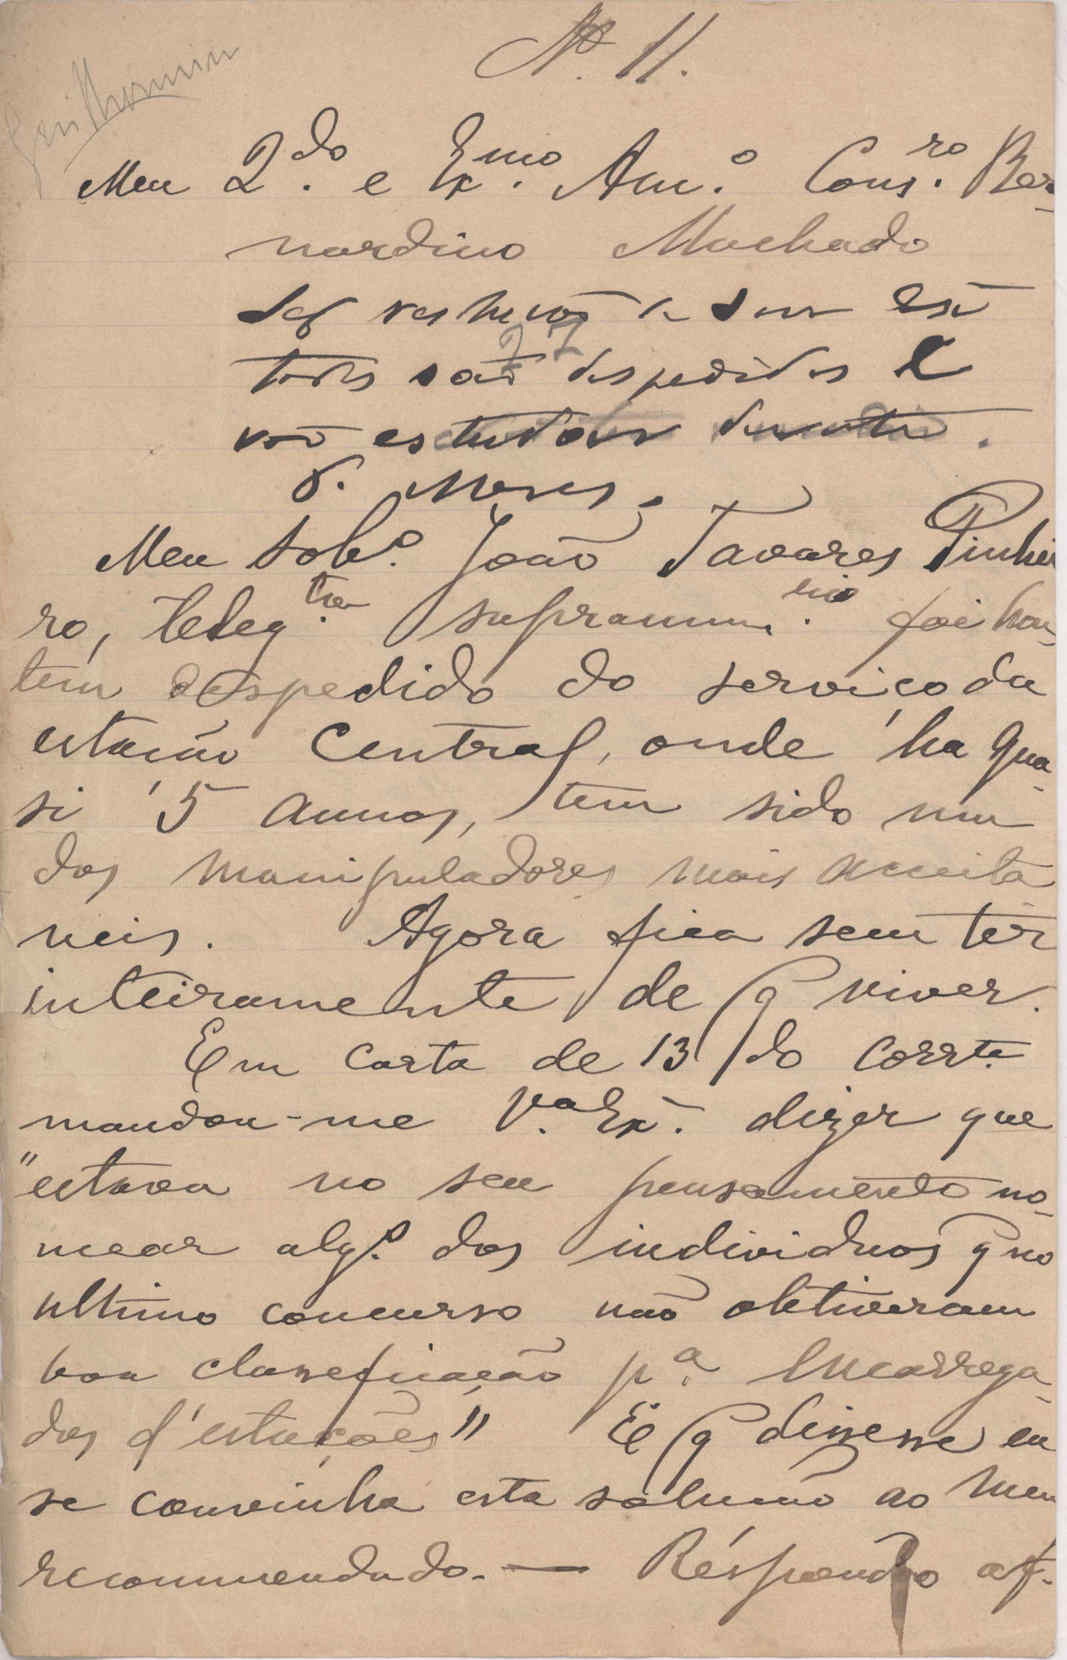 Guilhermin
Nº 11.
Meu 2.do e Ex.mo Am.º Cons.ro Ber-
nardino Machado
tores são despedidos e
vão estudar
Meu Sob.º João Tavares Pinhei
ro, teleg.ta supranum.rio foi hon-
tem despedido do serviço da
estação Central, onde ha qua-
si 5 annos, tem sido um
dos manipuladores mais acceita
veis. Agora fica sem ter
inteiramente de q viver.
Em carta de 13 do corr.te
mandou-me V.a Ex.ª dizer que
"estava no seu pensamento no-
mear alg.º dos individuos q no
ultimo concurso não obtiveram
boa classificação p.a Encarrega-
dos d'estações" E q dissesse eu
se convinha esta solução ao meu
recommendado. — Respondo af-